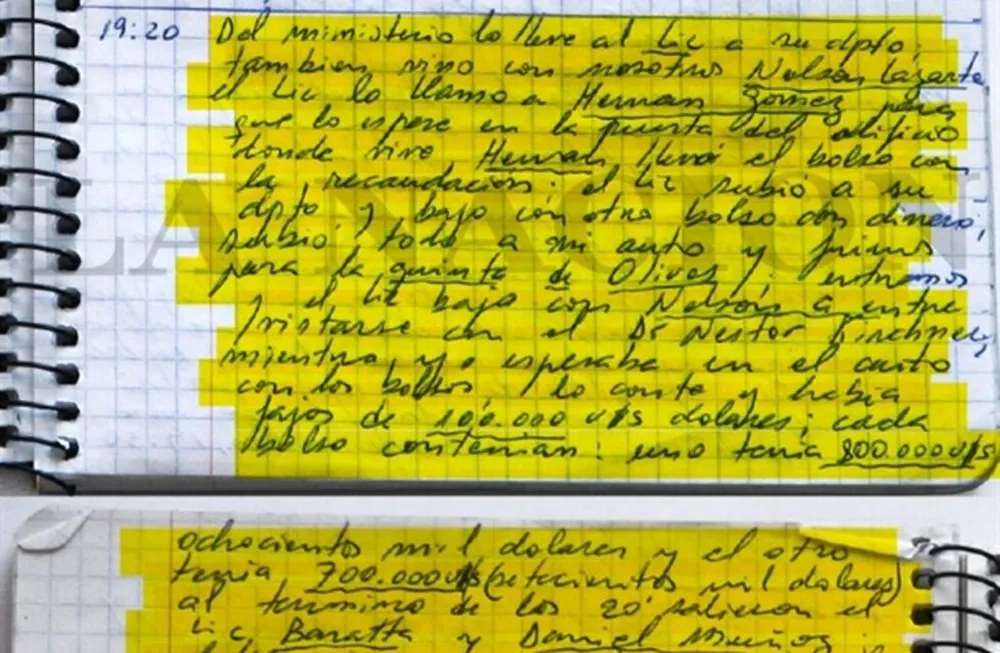 19:20 Del ministerio lo lleve al Lic a su dpto;
tambien vino con nosotros Nelson Lazarte
el Lic lo llamo a Hernan Gomez para
que lo espere en la puerta del edificio
donde vive Hernan, llevó el bolso con
la recaudacion: el Lic subió a su
dpto y bajo con otro bolso con dinero;
subio todo a mi auto y fuimos
para la quinta de Olivos; entramos
y el Lic bajo con Nelson a entre
vistarse con el Dr Nestor Kirchner,
mientras yo esperaba en el auto
con los bolsos, lo conte y habia
fajos de 100.000 u$s dolares; cada
bolso contenian: uno tenia 800.000 u$s
ochocientos mil dolares y el otro
tenia 700.000 u$s (setecientos mil dolares)
al termino de los 20' salieron el
Lic, Baratta y Daniel Muñoz
LA NACION